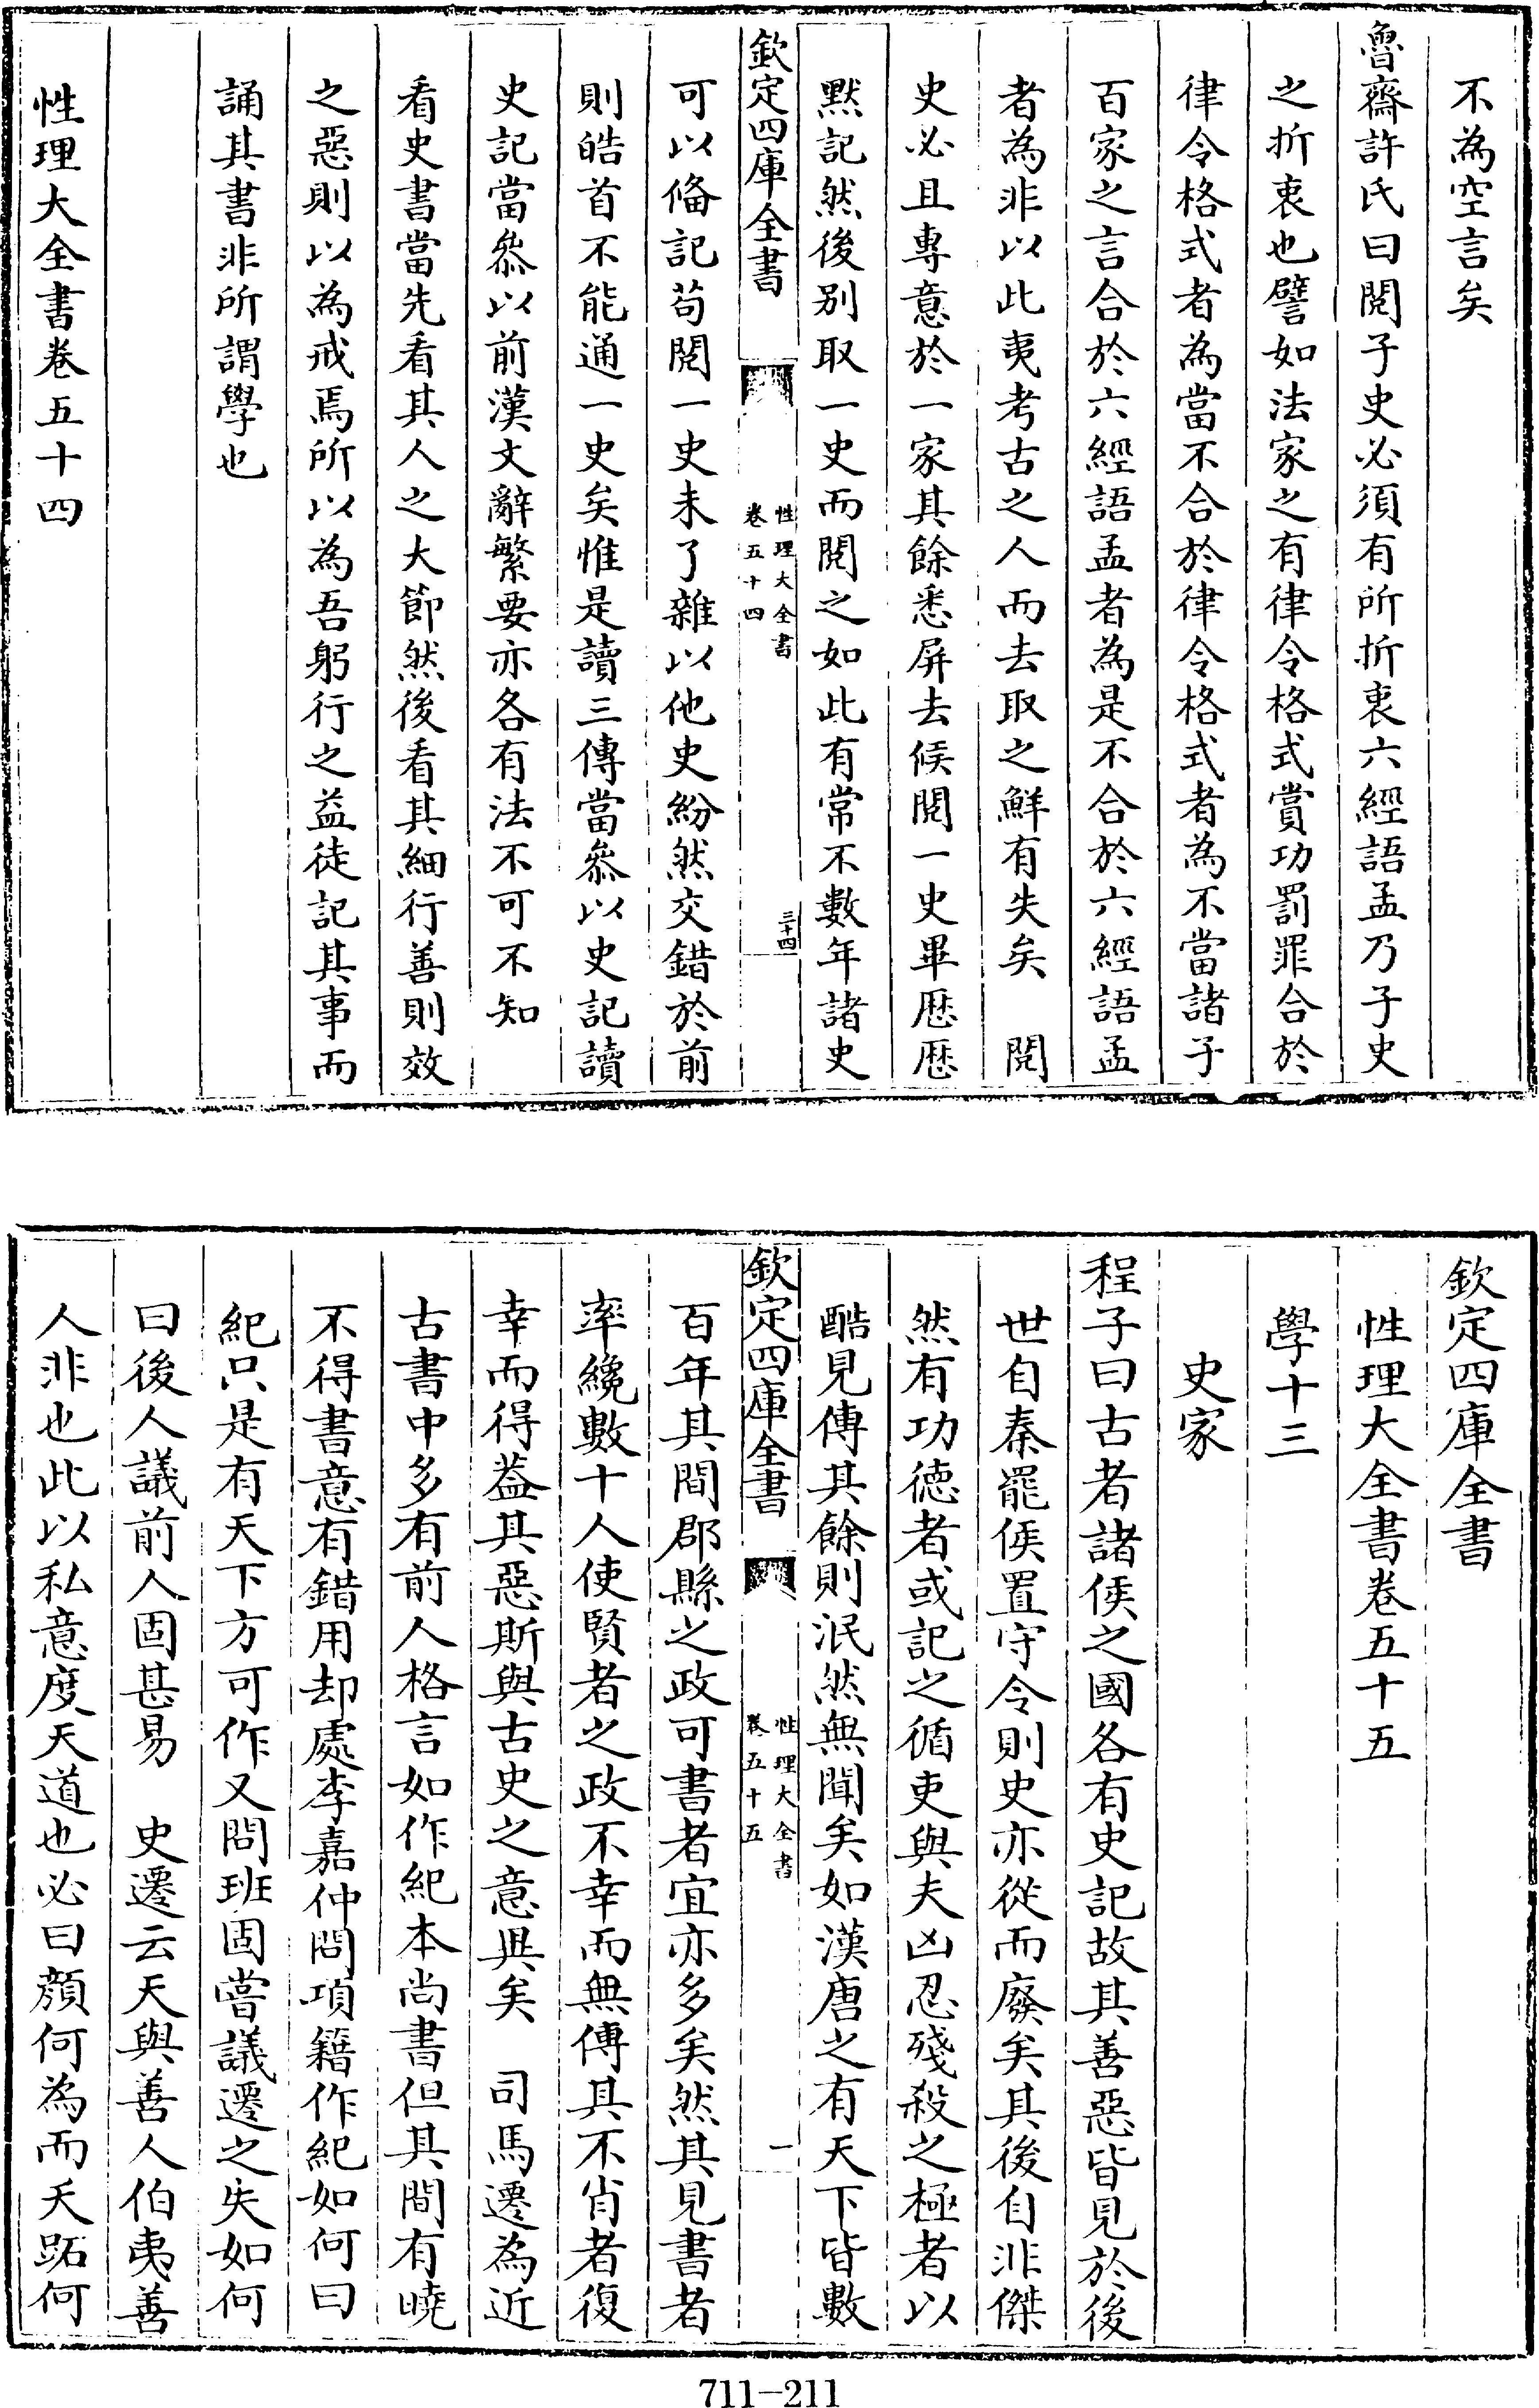 不為空言矣
魯齋許氏曰閱子史必須有所折衷六經語孟乃子史
之折衷也譬如法家之有律令格式賞功罰罪合於
律令格式者為當不合於律令格式者為不當諸子
百家之言合於六經語孟者為是不合於六經語孟
者為非以此夷考古之人而去取之鮮有失矣　閱
史必且專意於一家其餘悉屏去候閱一史畢歷歷
默記然後別取一史而閱之如此有常不數年諸史
欽定四庫全書
性理大全書
卷五十四
三十四
可以備記苟閱一史未了雜以他史紛然交錯於前
則皓首不能通一史矣惟是讀三傳當參以史記讀
史記當參以前漢文辭繁要亦各有法不可不知
看史書當先看其人之大節然後看其細行善則效
之惡則以為戒焉所以為吾躬行之益徒記其事而
誦其書非所謂學也
性理大全書卷五十四
欽定四庫全書
性理大全書卷五十五
學十三
史家
程子曰古者諸侯之國各有史記故其善惡皆見於後
世自秦罷侯置守令則史亦從而廢矣其後自非傑
然有功德者或記之循吏與夫凶忍殘殺之極者以
酷見傳其餘則泯然無聞矣如漢唐之有天下皆數
欽定四庫全書
性理大全書
卷五十五
一
百年其間郡縣之政可書者宜亦多矣然其見書者
率纔數十人使賢者之政不幸而無傳其不肖者復
幸而得蓋其惡斯與古史之意異矣　司馬遷為近
古書中多有前人格言如作紀本尚書但其間有曉
不得書意有錯用却處李嘉仲問項籍作紀如何曰
紀只是有天下方可作又問班固嘗議遷之失如何
曰後人議前人固甚易　史遷云天與善人伯夷善
人非也此以私意度天道也必曰顏何為而夭跖何
711-211